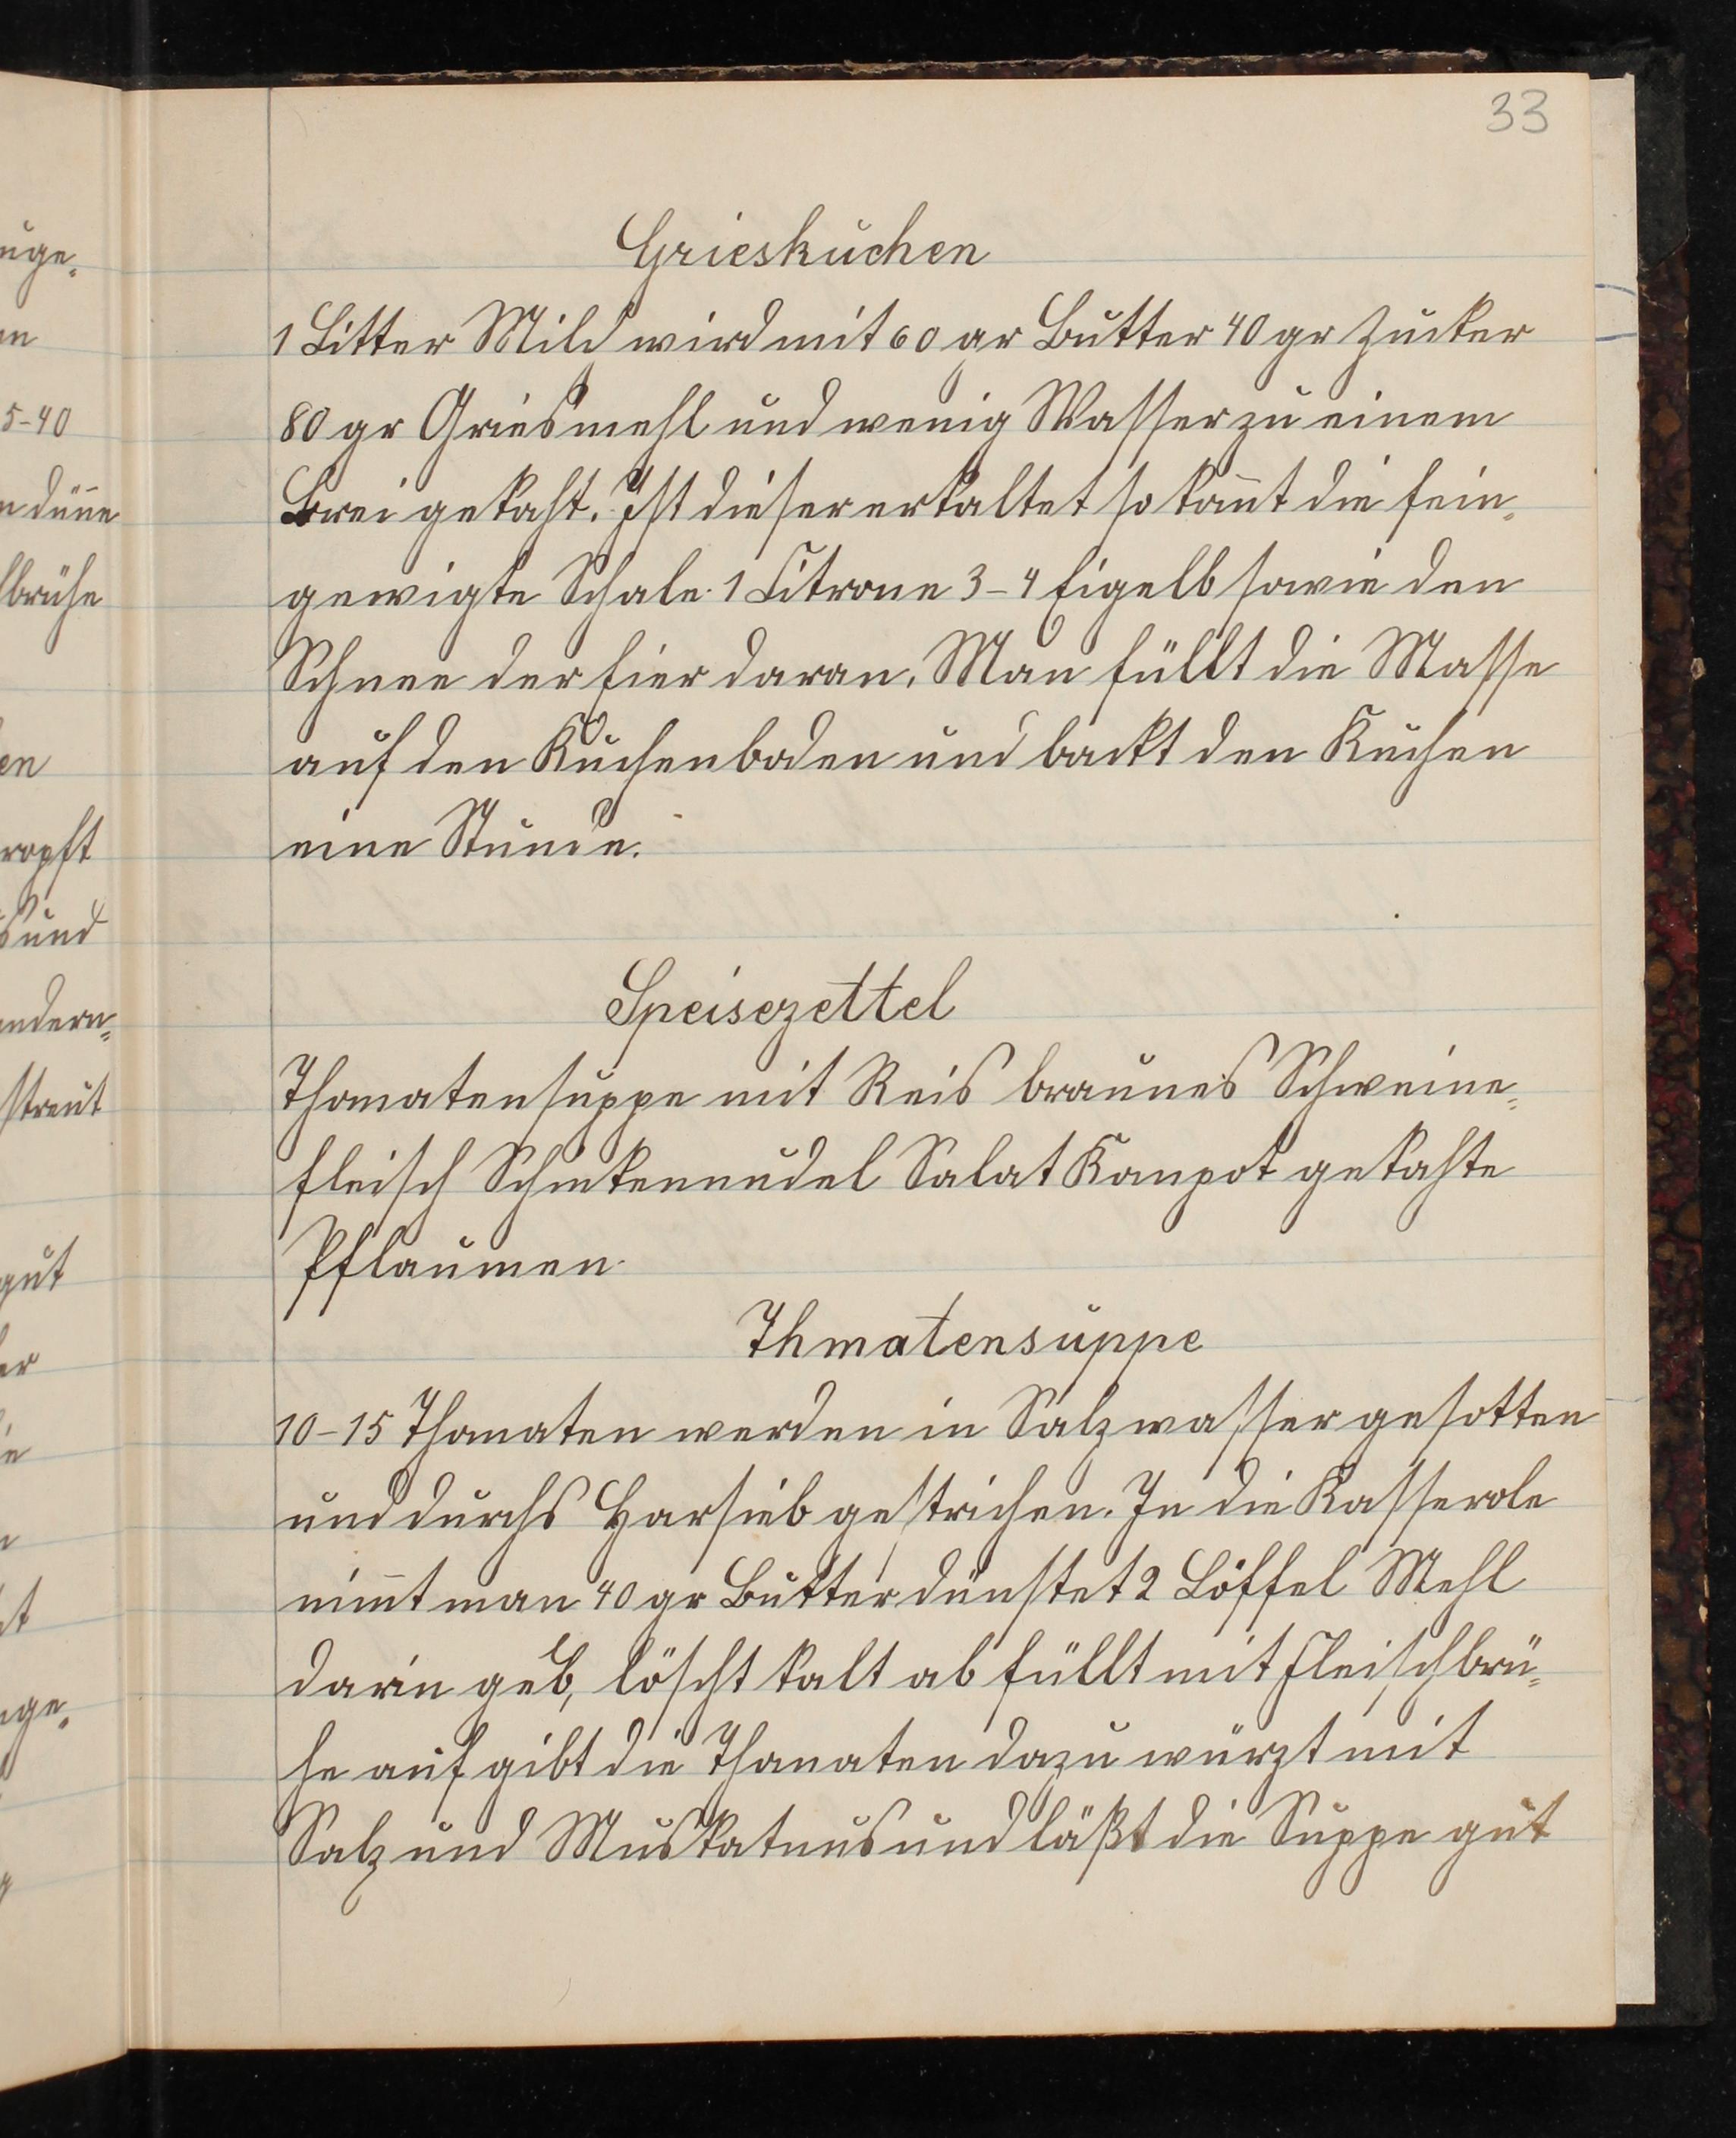 33
Grieskuchen
1 Litter Milch wird mit 60 gr Butter 40 gr Zucker
80 gr Griesmehl und wenig Wasser zu einem
Brei gekoht. Ist dieser erkaltet so kom̄t die fein-
gewigte Schale 1 Citrone 3-4 Eigelb sowie den
Schnee der Eier daran. Man füllt die Masse
auf den Kuchenboden und backt den Kuchen
eine Stunde.
Speisezettel
Thomatensuppe mit Reis braunes Schweine-
fleisch Schinkennudel Salat Kompot gekohte
Pflaumen
Thmatensuppe
10-15 Thomaten werden in Salzwasser gesotten
und durchs Harsieb gestrichen. In die Kasserole
nim̄t man 40 gr Butter dünstet 2 Löffel Mehl
darin gelb, löscht kalt ab füllt mit Fleischbrü-
he auf gibt die Thomaten dazu würzt mit
Salz und Muskatnus und läßt die Suppe gut
uge-
5-40
dünne
brühe
en
ropft
und
andern-
streut
gut
er